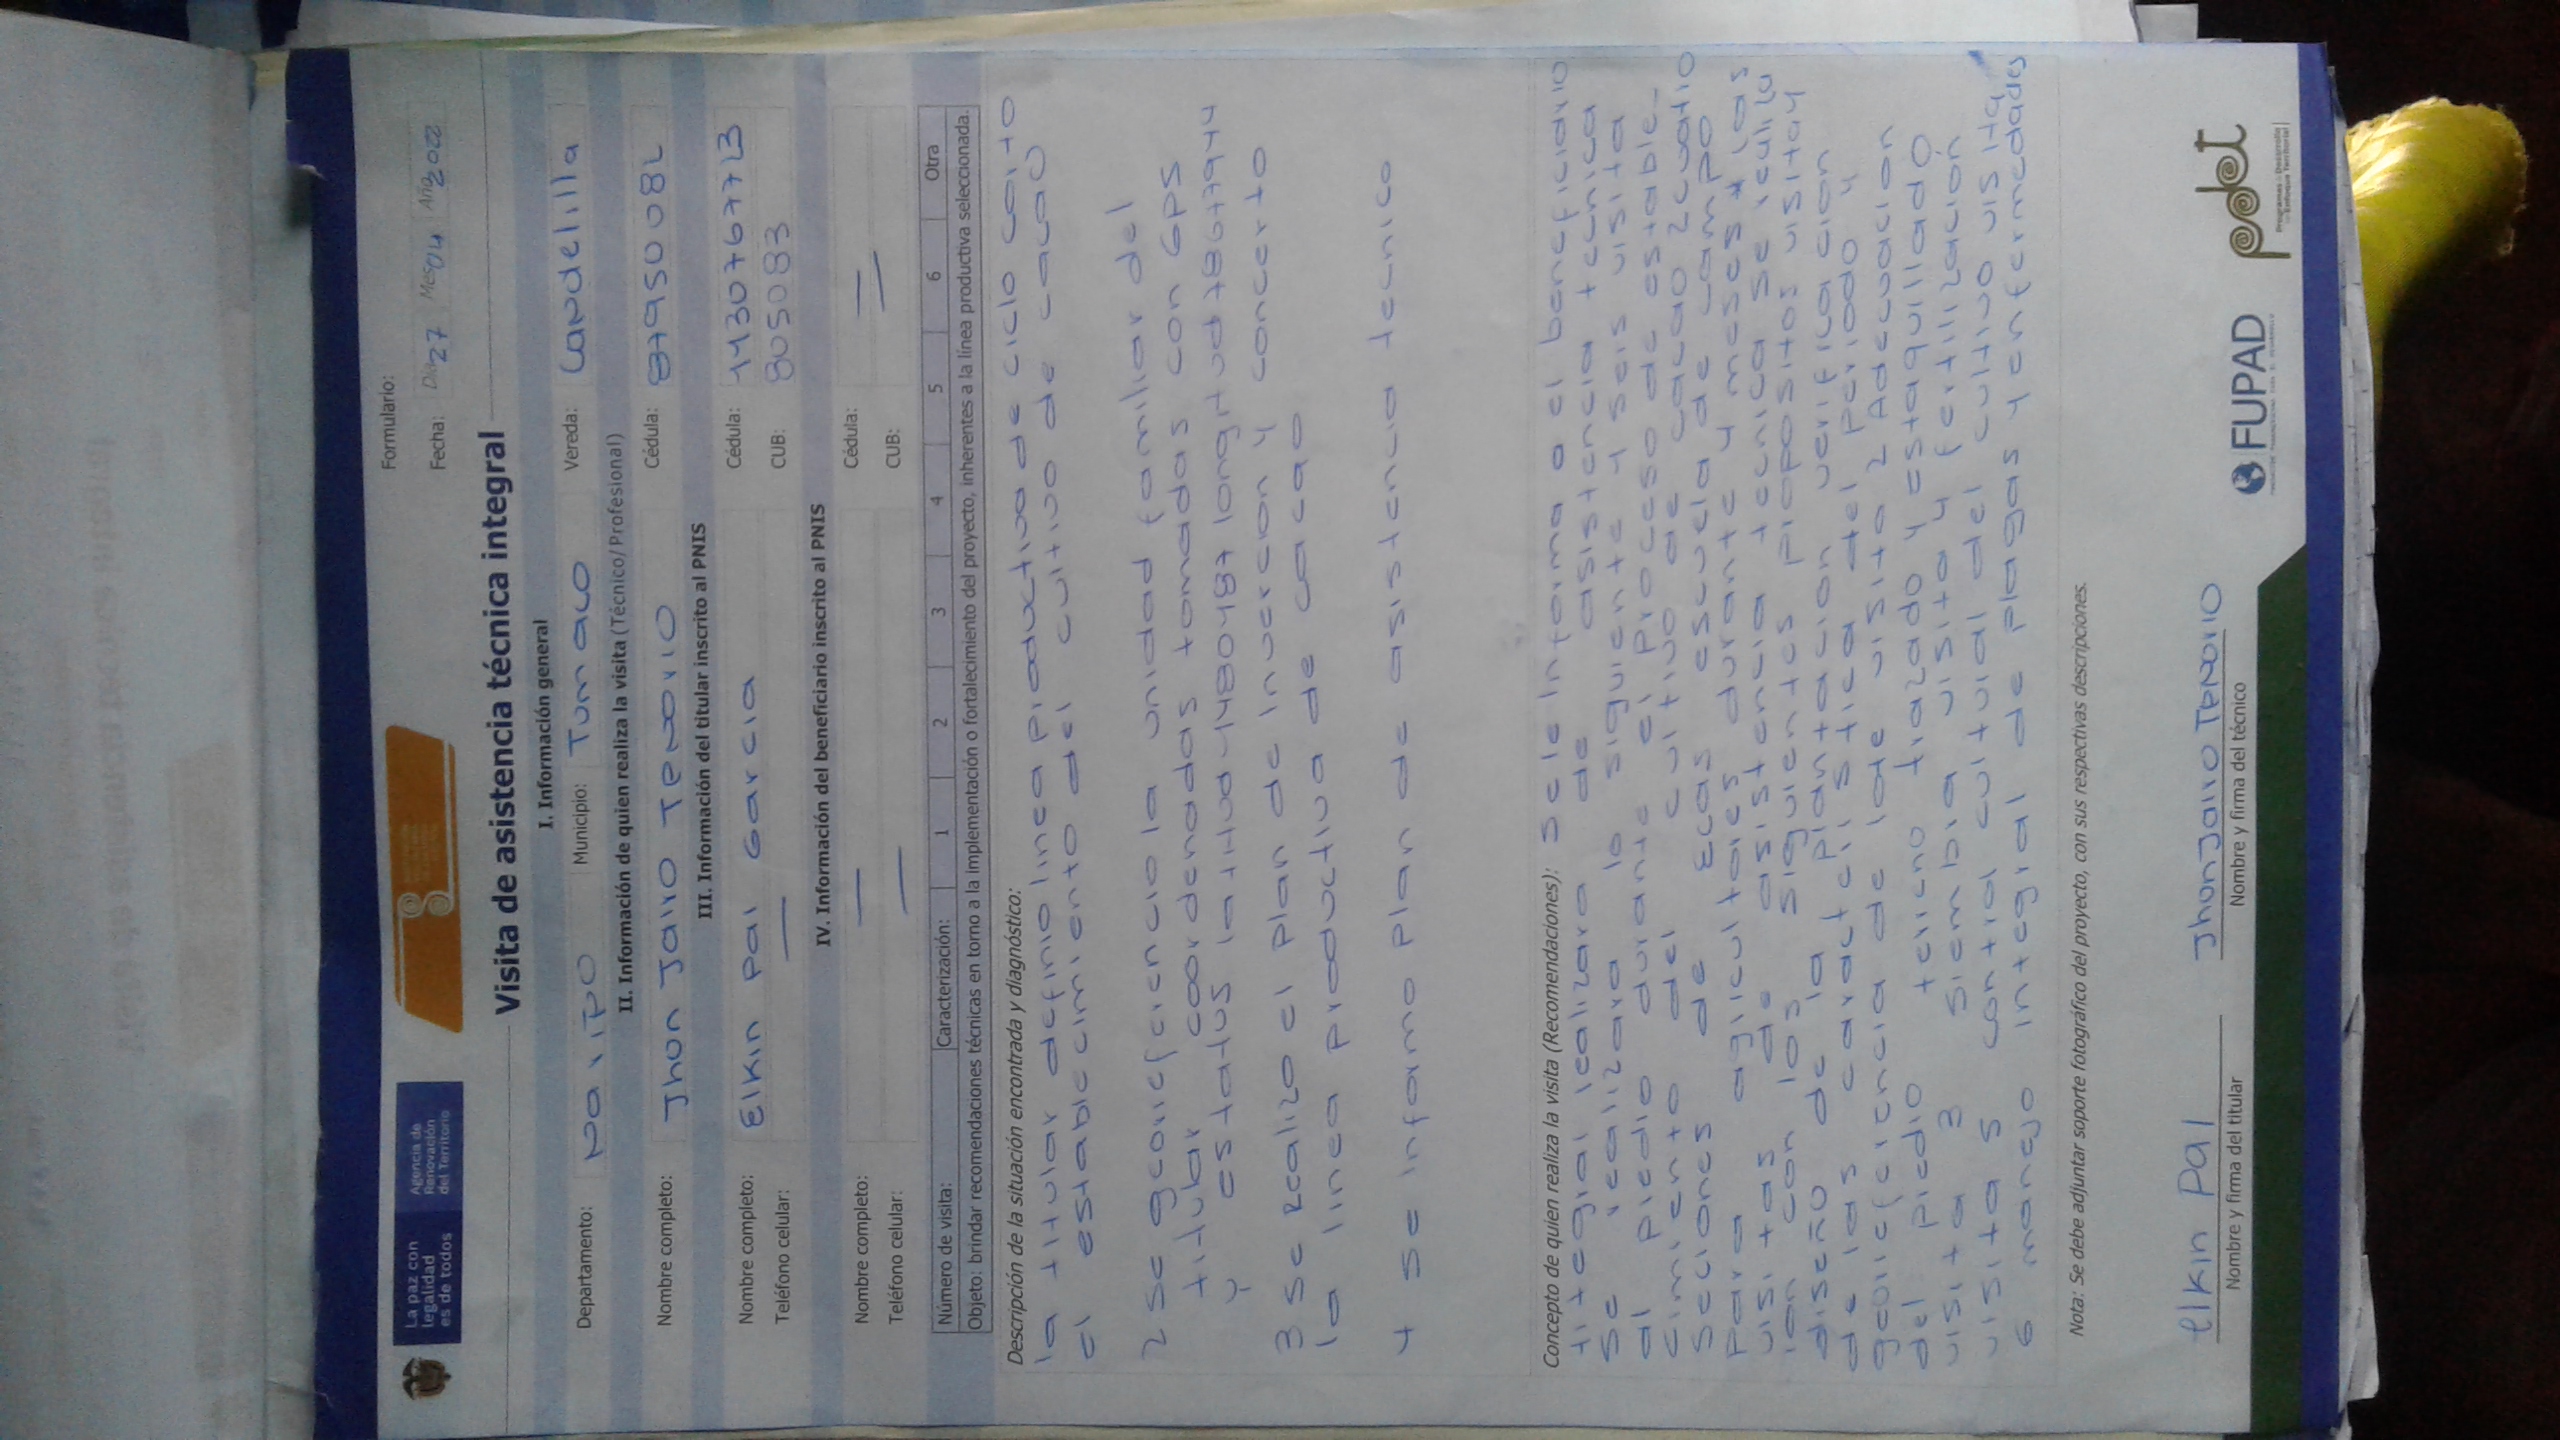 La paz con
legalidad
es de todos
Agencia de
Renovación
del Territorio
Formulario:
Fecha: Día 27 Mes 04 Año 2022
Visita de asistencia técnica integral
I. Información general
Departamento: Nariño Municipio: Tumaco Vereda: Candelilla
II. Información de quien realiza la visita (Técnico/Profesional)
Nombre completo: Jhon Jairo Tenorio Cédula: 87950082
III. Información del titular inscrito al PNIS
Nombre completo: Elkin pai Garcia Cédula:
Teléfono celular: — CUB: 805083
IV. Información del beneficiario inscrito al PNIS
Nombre completo: — Cédula: —
Teléfono celular: — CUB: —
Número de visita: Caracterización: 1 2 3 4 5 6 Otra
Objeto: brindar recomendaciones técnicas en torno a la implementación o fortalecimiento del proyecto, inherentes a la línea productiva seleccionada.
Descripción de la situación encontrada y diagnóstico:
la titular definio linea productiva de ciclo corto
el establecimiento del cultivo de cacao
2 se georieferencio la unidad familiar del
titular coordenadas tomadas con GPS
y estatus latitud longitud
3 se Realizo el plan de invercion y concerto
la linea productiva de cacao
4 se informo plan de asistencia tecnico
Concepto de quien realiza la visita (Recomendaciones): se le informa a el beneficiario
titegral realizara de asistencia tecnica
se realizara lo siguiente 4 seis visita
al predio durante el proceso de estable-
cimiento del cultivo de cacao 2 cuatro
seciones de Ecas escuela de campo
para agricultores durante 4 meses * las
visitas de asistencia tecnica se realiza
ran con los siguientes propositos visita 4
diseño de la plantacion verificacion
de las caracteristica del periodo y
georieferencia de lote visita 2 Adecuacion
del predio terieno trazado y estaquillado
visita 3 siembra visita 4 fertilización
visita 5 control cultural del cultivo visita
6 manejo integral de plagas y enfermedades
Nota: Se debe adjuntar soporte fotográfico del proyecto, con sus respectivas descripciones.
elkin Pai Jhon Jairo Tenorio
Nombre y firma del titular Nombre y firma del técnico
FUPAD
pdet
Programas de Desarrollo
con Enfoque Territorial